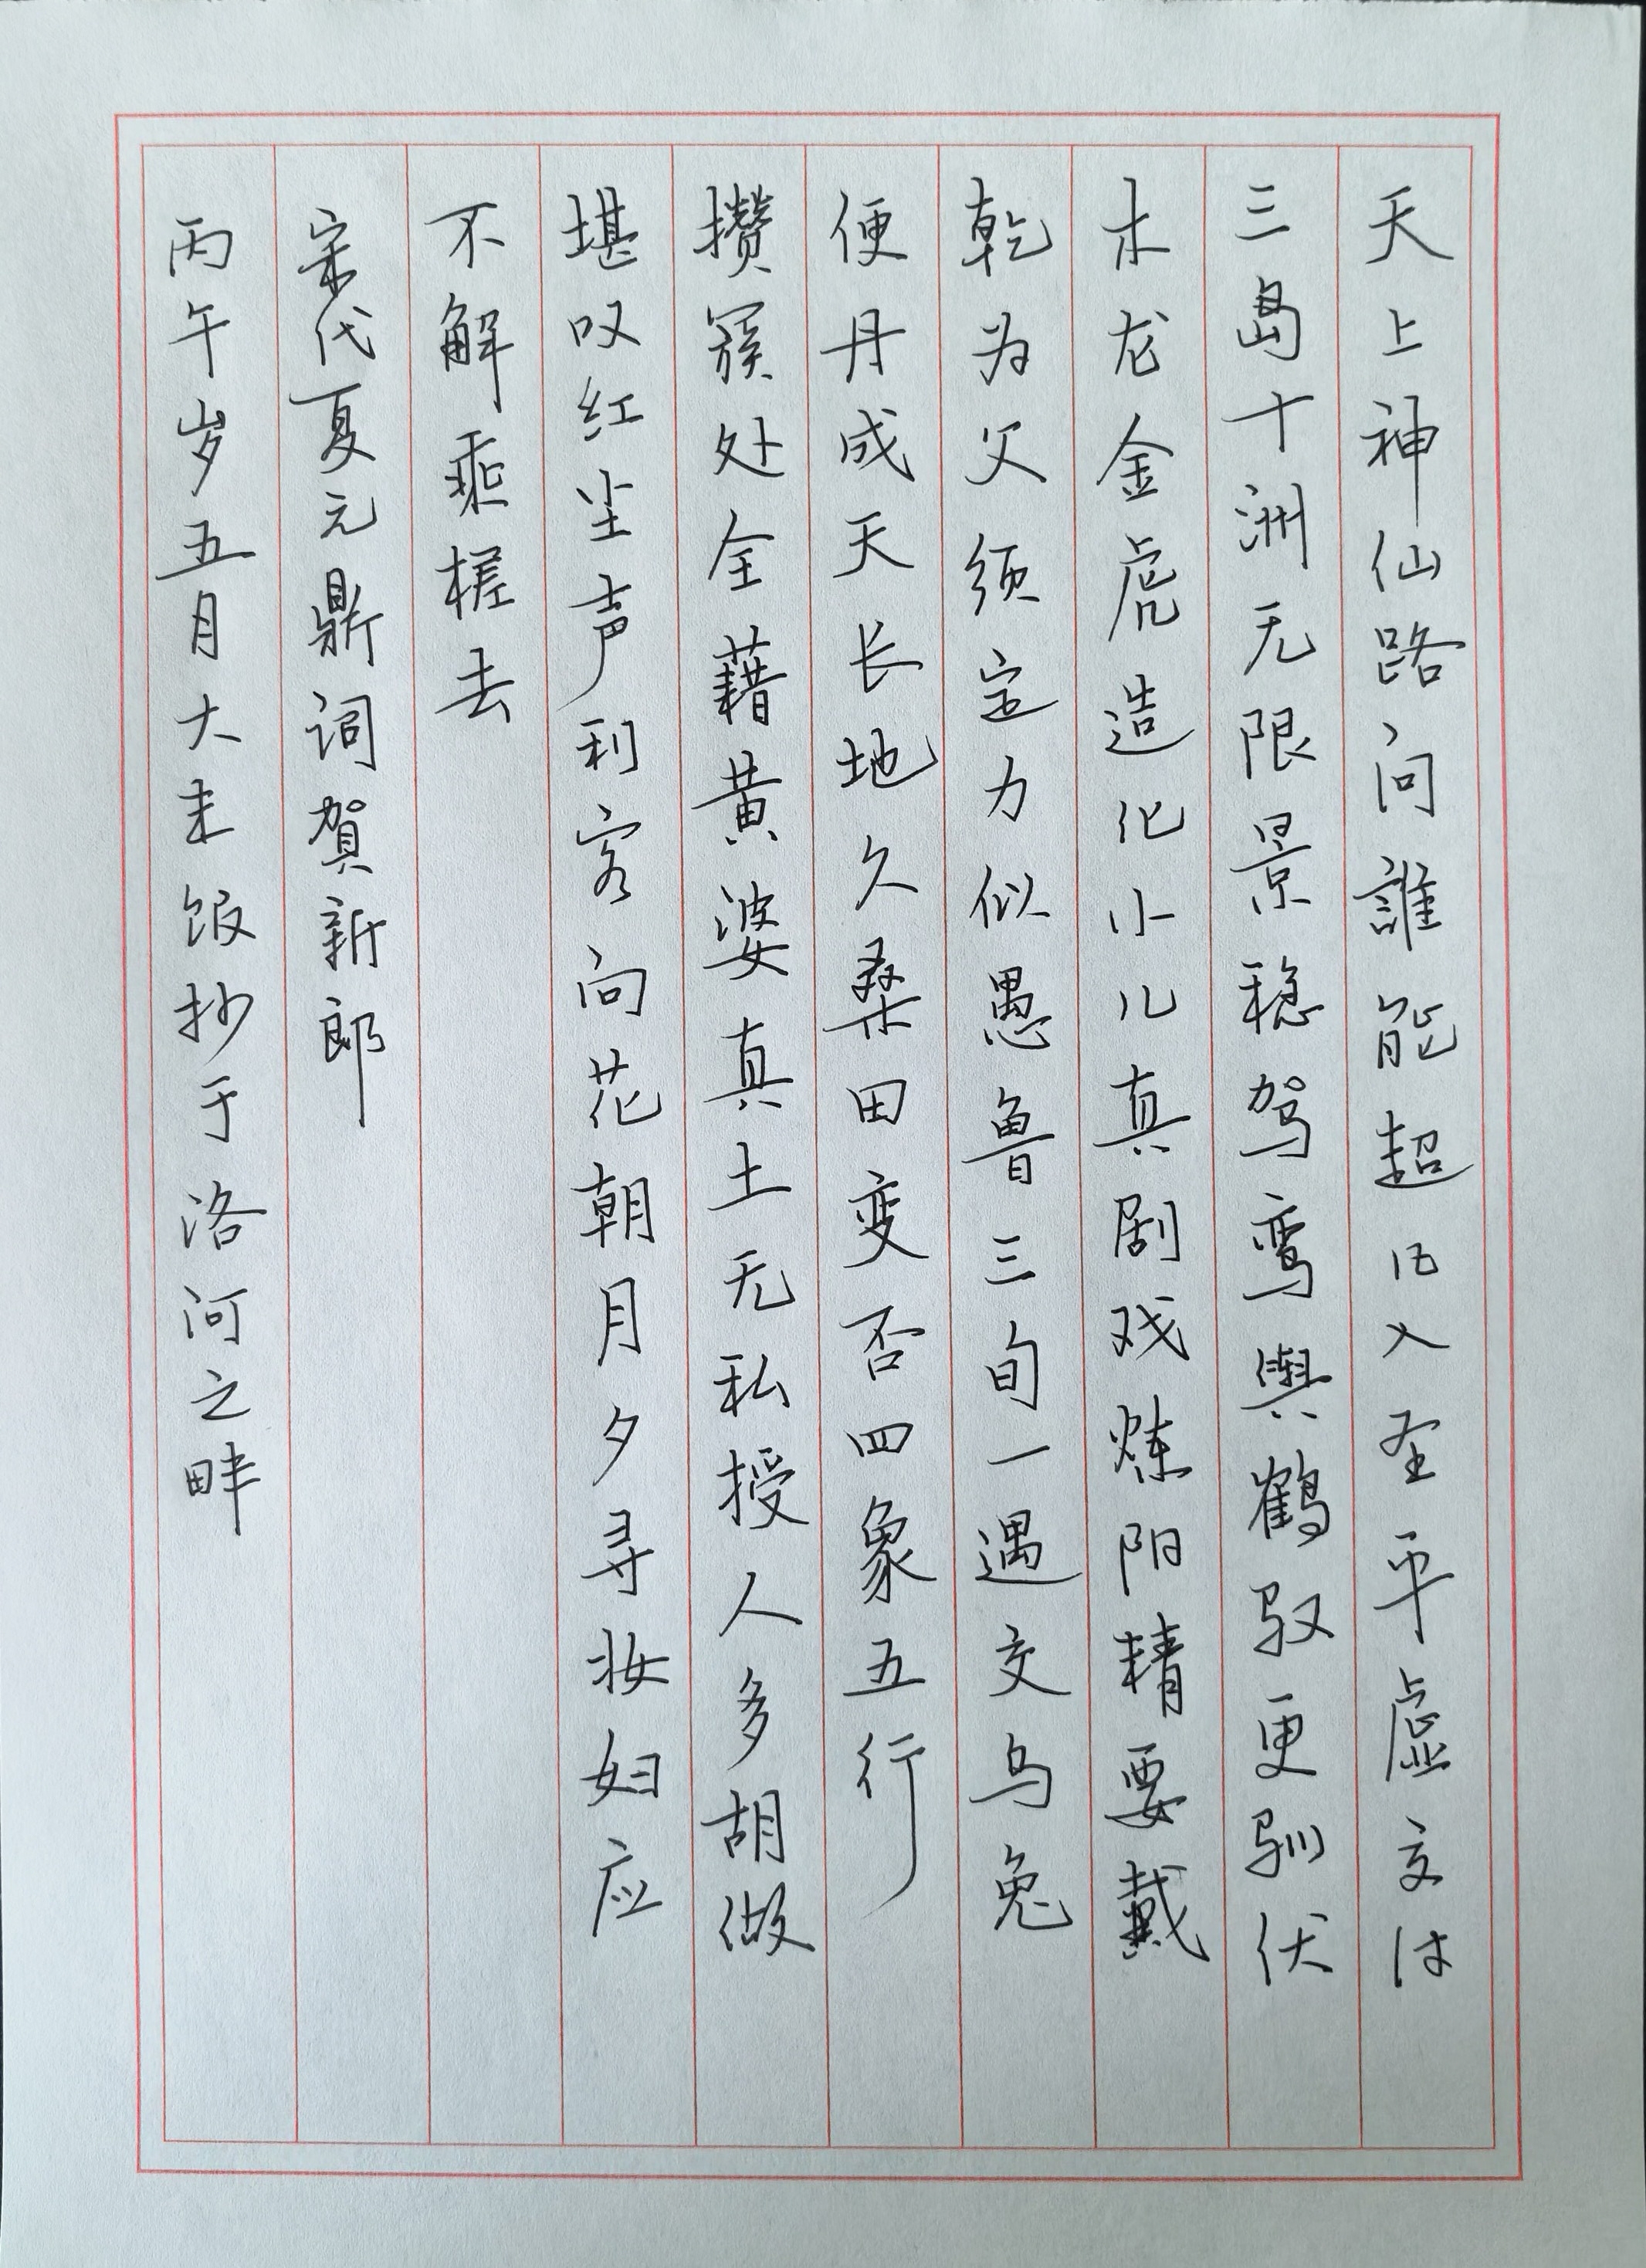 天上神仙路问誰能超凡入圣平虚交付
三岛十洲无限景稳驾鸾舆鹤驭更驯伏
木龙金虎造化小儿真剧戏炼阳精要戴
乾为父须定力似愚鲁三旬一遇交乌兔
便丹成天长地久桑田变否四象五行
攒簇处全藉黄婆真土无私授人多胡做
堪叹红尘声利客向花朝月夕寻妆妇应
不解乘槎去
宋代夏元鼎词贺新郎
丙午岁五月大耒饭抄于洛河之畔